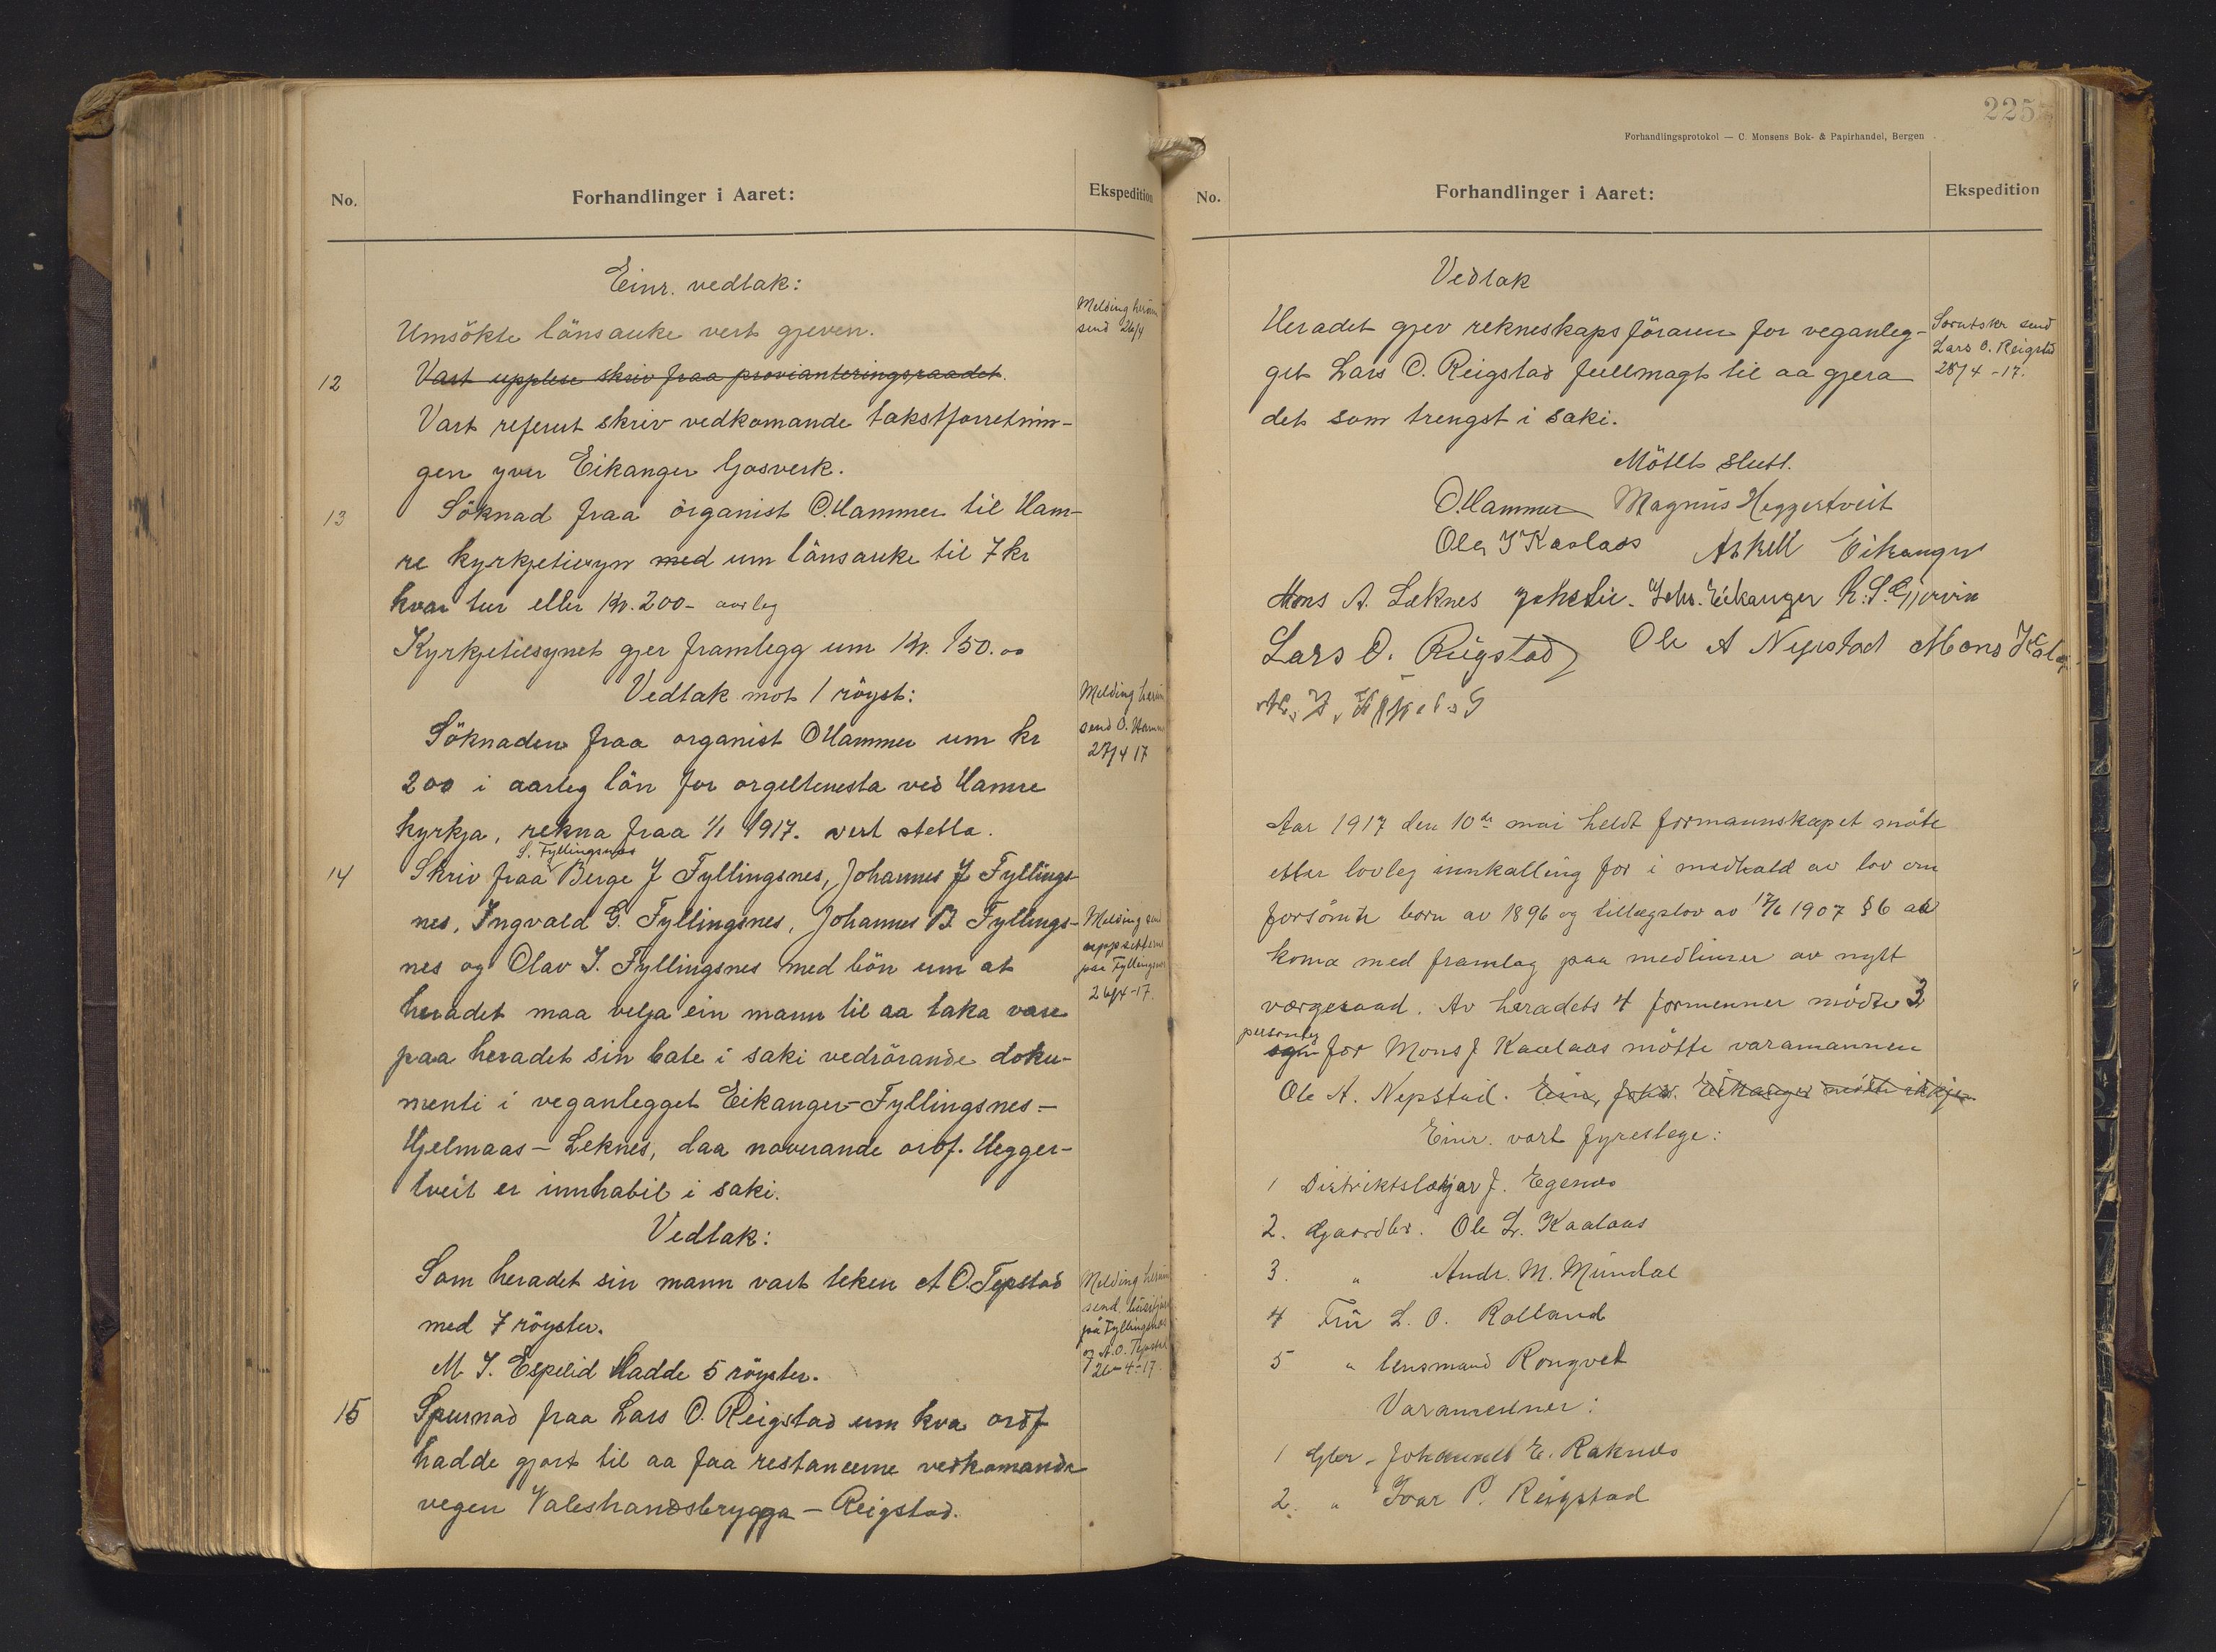 No.
Forhandlinger i Aaret:
Ekspedition
Einr. vedtak:
Melding herom
send 26/4
Umsökte lönsauke vert gjeven.
12
Vart upplese skriv fraa provianteringsraadet.
Vart referert skriv vedkomande takstforretnin-
gen yver Eikanger Gosverk.
13
Söknad fraa organist O. Hammer til Ham-
re kyrkjetilsyn med um lönsauke til 7 kr
hvar tur eller Kr. 200- aarleg
Kyrkjetilsynet gjer framlegg um Kr. 150.00
Vedtak mot 1 röyst:
Melding herom
send O. Hammer
27/4 17
Söknaden fraa organist O Hammer um kr
200 i aarleg lön for orgeltenesta ved Hamre
kyrkja, rekna fraa 1/1 1917. vert stetta.
S. Fyllingsnes
14
Skriv fraa Berge J Fyllingsnes, Johannes J Fyllings-
nes, Ingvald G. Fyllingsnes, Johannes B. Fyllings-
nes og Olav I. Fyllingsnes med bön um at
heradet maa velja ein mann til aa taka vare
paa heradet sin bate i saki vedrörande doku-
menti i veganlegget Eikanger-Fyllingsnes-
Hjelmaas - Leknes, daa noverande ordf. Hegger-
tveit er innhabil i saki.
Melding send
uppsittarne
paa Fyllingsnes
26/4-17.
Vedtak:
Som heradet sin mann vart teken A O. Tepstad
med 7 röyster.
M. I. Espelid Hadde 5 röyster.
Melding herom
send
paa Fyllingsnes
og A.O. Tepstad
26-4-17.
15
Spurnad fraa Lars O. Reigstad um kva ordf
hadde gjort til aa faa restancerne vedkomande
vegen Valeshandsbrygga - Reigstad.
225
Forhandlingsprotokol — C. Monsens Bok- & Papirhandel, Bergen
No.
Forhandlinger i Aaret:
Ekspedition
Vedtak
Heradet gjev rekneskapsföraren for veganleg-
get Lars O. Reigstad fullmagt til aa gjera
det som trengst i saki.
send
Lars O. Reigstad
28/4-17.
Mötet slutt.
O. Hammer Magnus Heggertveit
Ole J Kaalaas Askell Eikanger
Mons A. Leknes Joh. Eikanger R. S. Gjervin
Lars O. Reigstad Ole A Nepstad Mons
Aar 1917 den 10de mai heldt formannskapet möte
etter lovleg innkalling for i medhald av lov om
forsömte born av 1896 og tillægslov av 1907 § 6 aa
koma med framlag paa medlimer av nytt
værgeraad. Av heradets 4 formenner mödte 3
personleg
for Mons J Kaalaas mötte varamannen
Ole A. Nepstad. Ein, Johs. Eikanger mötte ikkje
Einr. vart fyreslege:
1 Distriktslækjar J. Egenæs
2. Gaardbr. Ole L. Kaalaas
3. " Andr. M. Mundal
4 Fru L. O. Rolland
5 " lensmand Rongved
Varamenner:
1 Gbr. Johannes E. Raknes
2. " Ivar P. Reigstad